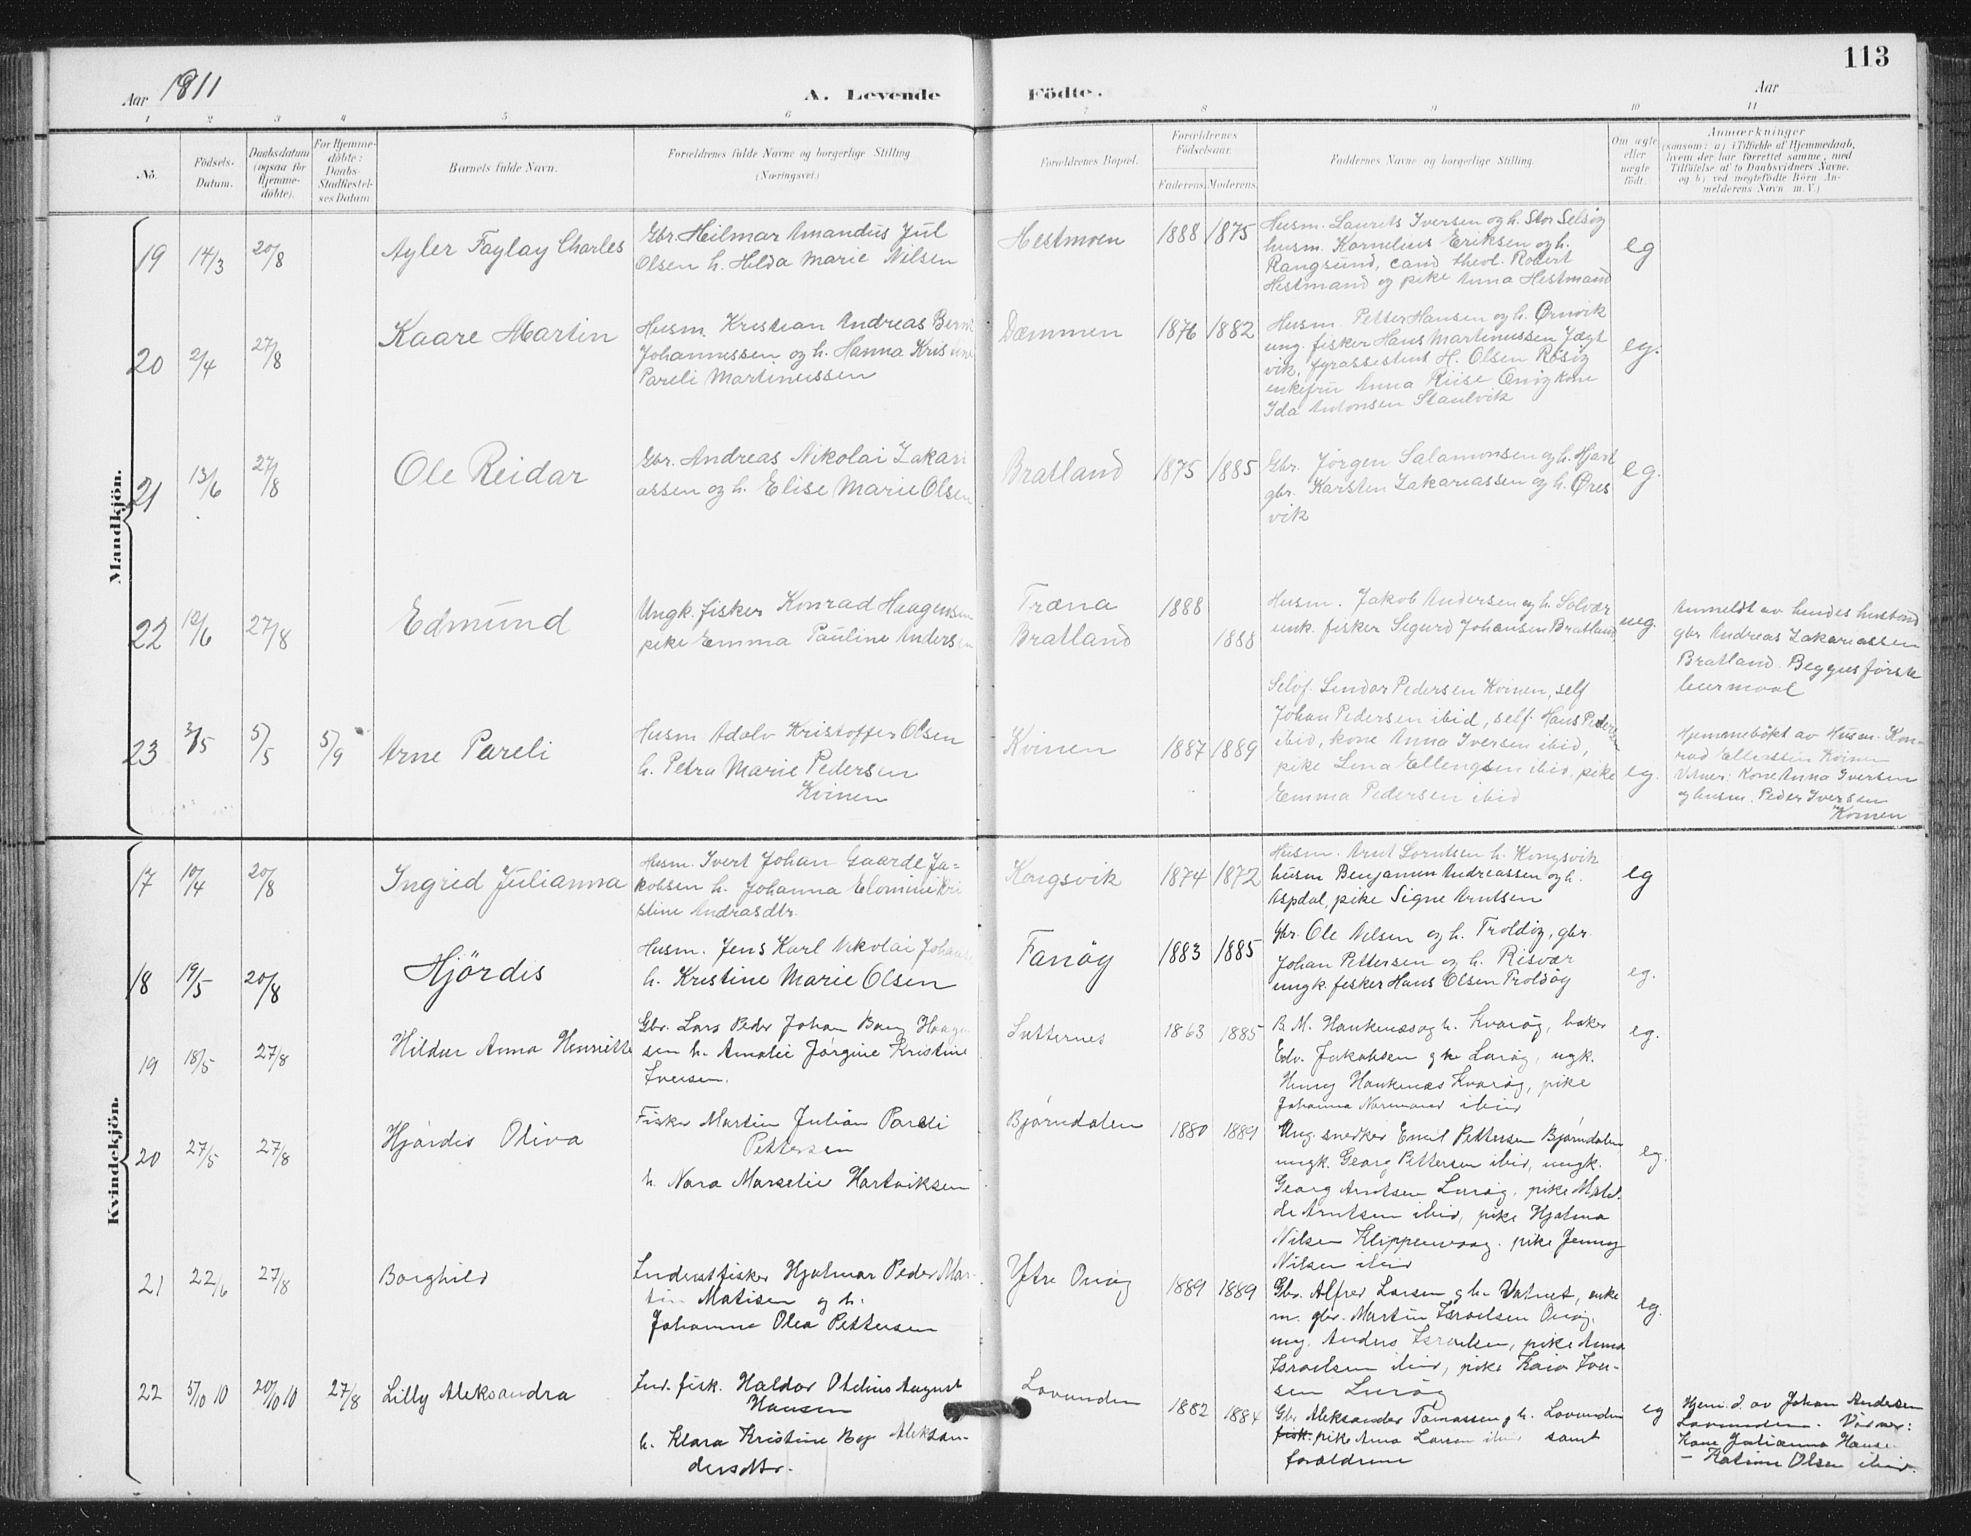 113
Aar 1911
A. Levende Födte.
Aar
1 2 3 4 5 6 7 8 9 10 11
No.
Födsels-Datum.
Daabsdatum (ogsaa for Hjemme-döbte).
For Hjemme-döbte: Daabs-Stadfæstel-ses Datum
Barnets fulde Navn.
Forældrenes fulde Navne og borgerlige Stilling (Næringsvei.)
Forældrenes Bopæl.
Forældrenes Födselsaar.
Faderens. Moderens.
Faddernes Navne og borgerlige Stilling.
Om ægte eller uægte födt.
Anmærkninger
(saasom: a) i Tilfælde af Hjemmedaab, hvem der har forrettet samme, med Tilföielse af to Daabsvidners Navne. og b) ved uægtefödte Börn An-melderens Navn m. V.)
Mandkjön.
19 14/3 20/8 Ayler Faylay Charles
Gbr. Heilmar Amandus Jul
Olsen h. Hilda Marie Nilsen
Hestmoen 1888 1875
Husm. Laurits Iversen og h. Stor Selsöy
husm. Kornelius Eriksen og h.
Rangsund, cand. theol. Robert
Hestmand og pike Anna Hestmand
eg
20 2/4 27/8 Kaare Martin
Husm. Kristian Andreas Bernt
Johannessen og h. Hanna Kristine
Pareli Martinussen
Dæmmen 1876 1882
Husm. Petter Hansen og h. Ørnvik
ung. fisker Hans Martinussen Jægt
vik, fyrassistent H. Olsen Rösöy
enkefru Anna Riise Onöy kone
Ida Antonsen Staulvik
eg.
21 13/6 27/8 Ole Reidar
Gbr. Andreas Nikolai Zakari
assen og h. Elise Marie Olsen
Bratland 1875 1885
Gbr. Jörgen Salamonsen og h. Hjart
gbr. Karsten Zakariassen og h. Øres
vik
eg.
22 12/6 27/8 Edmund
Ungk. fisker Konrad Haagensen
pike Emma Pauline Andersen
Træna 1888
Bratland 1888
Husm. Jakob Andersen og h. Solvær
unk. fisker Sigurd Johansen Bratland
ueg.
Anmeldt av hendes husbond
gbr Andreas Zakariassen
Bratland. Begges förste
leiermaal
23 3/5 5/5 5/9 Arne Pareli
Husm Adolv Kristoffer Olsen
h. Petra Marie Pedersen
Kvinen
Kvinen 1887 1889
Selvf. Lindor Pedersen Kvinen, self
Johan Pedersen ibid, self. Hans Pedersen
ibid, kone Anna Iversen ibid,
pike Lina Ellengsen ibid, pike
Emma Pedersen ibid
eg.
Hjemmedökt av Husm. Kon-
rad Elliassen Kvinen
Vitner: Kone Anna Iversen
og husm. Peder Iversen
Kvinen
Kvindekjön.
17 10/4 20/8 Ingrid Julianna
Husm. Ivert Johan Gaarde Ja-
kobsen h. Johanna Elomine Kri
stine Andrasdtr.
Kongsvik 1874 1872
Husm. Arnt Lorntsen h. Kongsvik
husm Benjamin Andreassen og h.
Aspdal, pike Signe Arntsen
eg
18 19/5 20/8 Hjördis
Husm. Jens Karl Nikolai Johanse
h. Kristine Marie Olsen
Fanöy 1883 1885
Gbr. Ole Nilsen og h. Troldöy, gbr.
Johan Pettersen og h. Risvær
ungk. fisker Hans Olsen Troldöy
eg.
19 18/5 27/8 Hildur Anna Henriette
Gbr. Lars Peder Johan Bang Haagen
sen h. Amalie Jörgine Kristine
Iversen.
Sætternes 1863 1885
B. M. Hankenæs og h. Kvaröy, baker
Edv. Jakobsen g h Luröy, ugk.
Henry Hankenæs Kvaröy, pike
Johanna Normand ibid
eg.
20 27/5 27/8 Hjördis Oliva
Fisker Martin Julian Pareli
Pettersen
h. Nora Marselie Hartviksen
Björndalen 1880 1889
Ung. snedker Emil Pettersen Björndalen
ungk. Georg Pettersen ibid, ungk.
Georg Arntsen Luröy, pike Matil-
de Arntsen ibid, pike Hjalma
Nilsen Klippenvaag, pike Jenny
Nilsen ibid
eg.
21 22/6 27/8 Borghild
Inderstfisker Hjalmar Peder Mar-
tin Matisen og h.
Johanna Olea Pettersen
Ytre Onöy 1889 1889
Gbr. Alfred Larsen g h. Vatnet, enke
m. gbr. Martin Israelsen Onöy,
ung. Anders Israelsen, pike Anna
Israelsen ibid, pike Kaia Iver-
sen Luröy
eg.
22 5/10 10 20/10 10 27/8 Lilly Aleksandra
Ind. fisk. Haldor Otelius August
Hansen
h. Klara Kristine Boy Aleksan-
dersdtr.
Lovunden 1882 1884
Gbr Aleksander Tomassen g h. Lovunden
fisk. pike Anna Larsen ibid samt
forældrene
eg
Hjem. d. av Johan Andersen
Lovunden. Vidner:
Kone Julianna Hansen
- Katrine Olsen ibid.